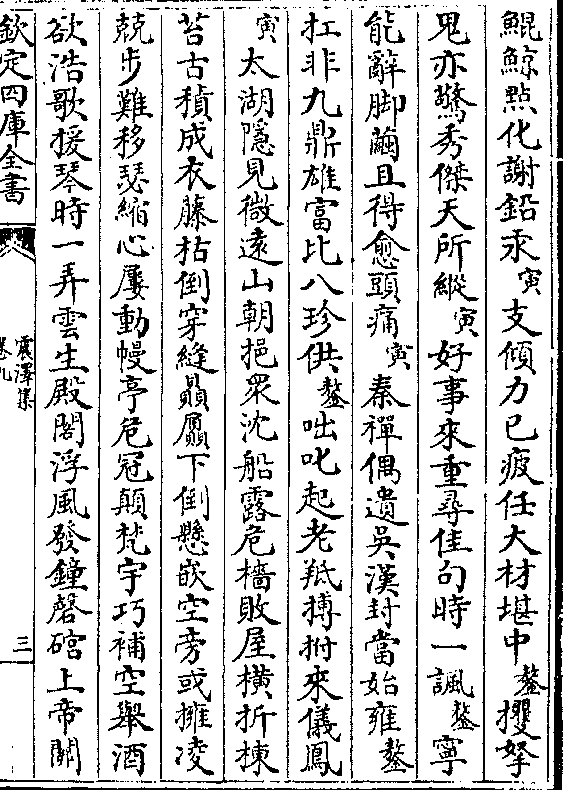 鯤鯨㸃化謝鉛汞寅支傾力已疲任大材堪中鏊攫拏
鬼亦驚秀傑天所縱寅好事來重尋佳句時一諷鏊寧
能辭脚繭且得愈頭痛寅秦禪偶遺吳漢封當始雍鏊
扛非九鼎雄富比八珍供鏊咄叱起老羝搏拊來儀鳳
寅太湖隱見微遠山朝挹衆沈船露危檣敗屋橫折棟
苔古積成衣藤枯倒穿縫贔屭下倒懸嵌空旁或擁凌
兢步難移瑟縮心屢動幔亭危冠顛梵宇巧補空舉酒
欲浩歌援琴時一弄雲生殿閣浮風發鐘磬硿上帝關
欽定四庫全書
震澤集
卷九
三